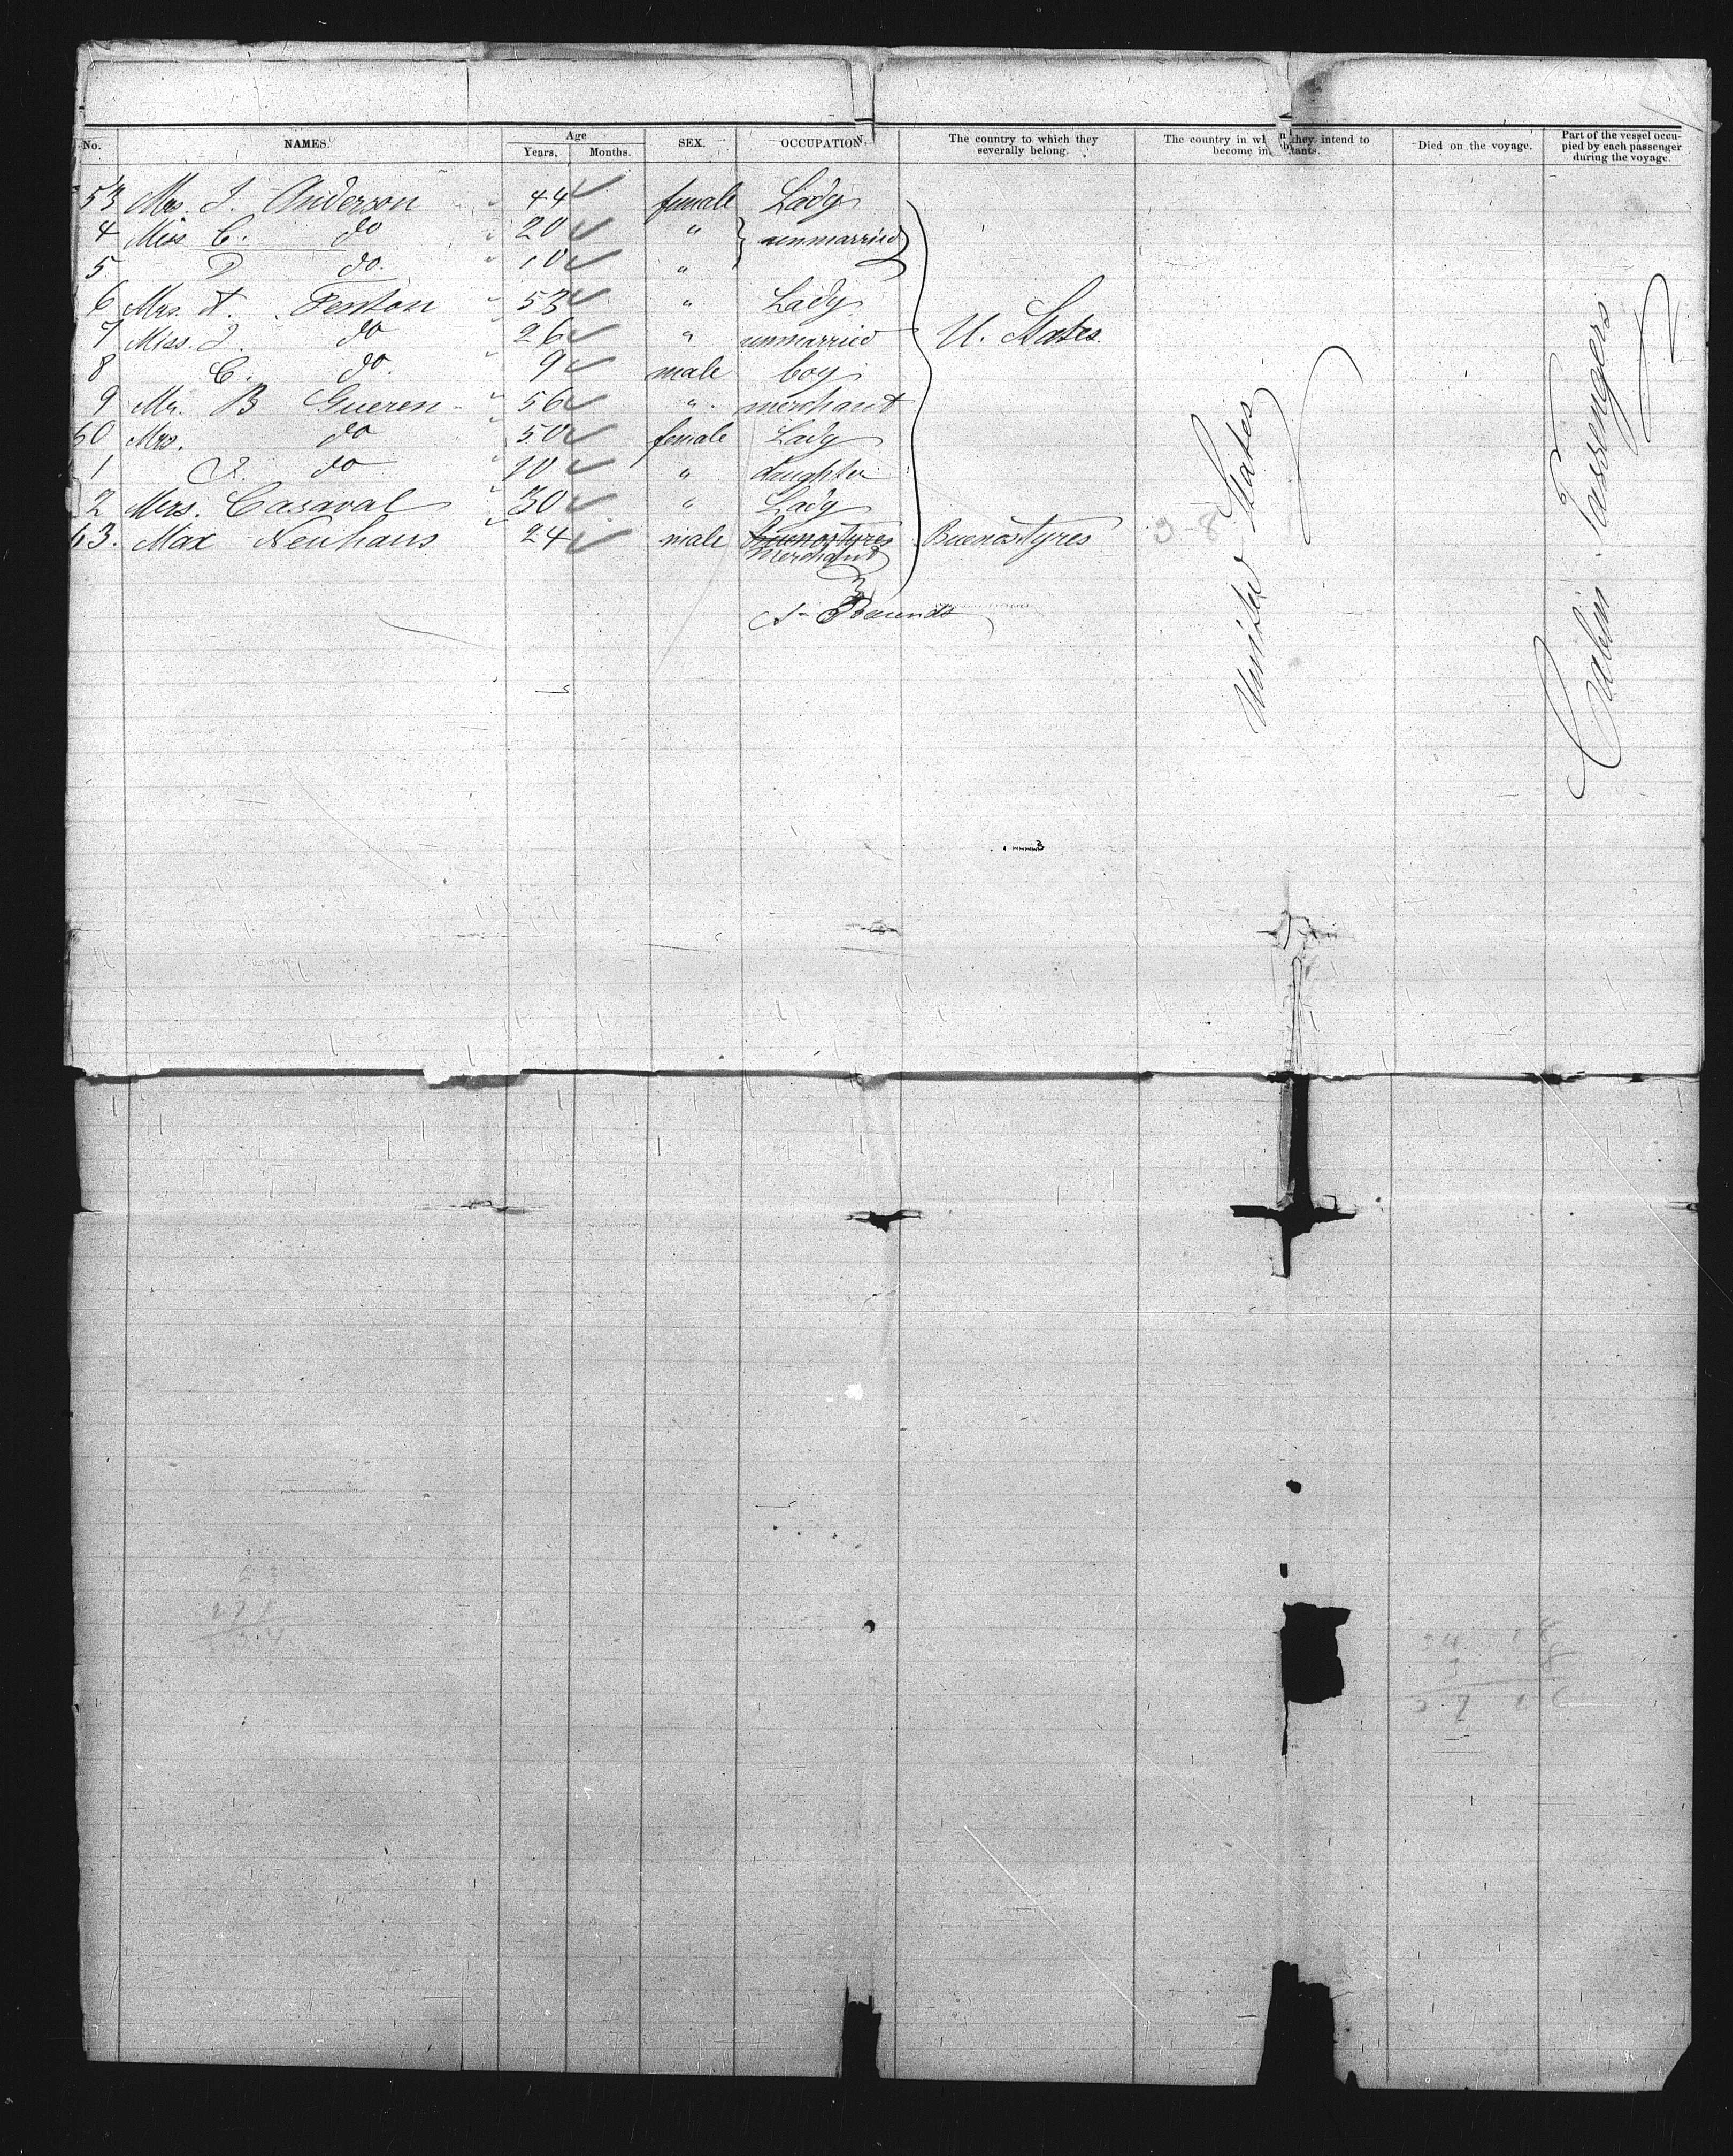 No. NAMES. Age Years. Months. SEX. OCCUPATION. The country to which they severally belong. The country in wh n they intend to become in bitants. Died on the voyage. Part of the vessel occupied by each passenger during the voyage.
53 Mrs. J. Anderson 44 female Lady
4 Miss C. do 20 " } unmarried
5 do. 10 "
6 Mrs. A. Fenton 53 " Lady
7 Miss. J. do 26 " unmarried U. States.
8 C. do. 9 male boy
9 Mr. B Gueren 56 " merchant
60 Mrs. do 50 female Lady
1 do 10 " daughter
2 Mrs. Casaval 30 " Lady
63. Max Neuhaus 24 male Buenos Ayres Merchant Buenos Ayres
3-8
United States
Cabin Passengers
63
271
34
3
37